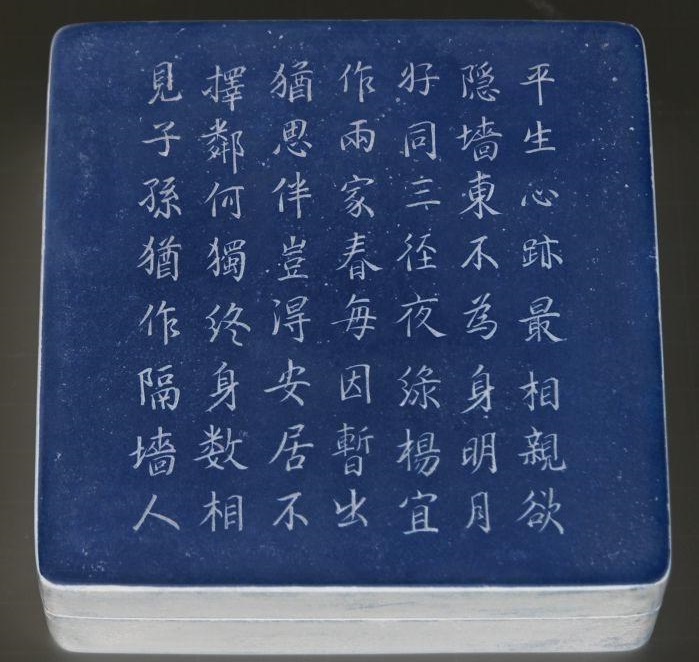 平生心跡最相親欲
隠墻東不為身明月
好同三徑夜綠楊宜
作兩家春每因暫出
猶思伴豈得安居不
擇鄰何獨終身数相
見子孫猶作隔墻人